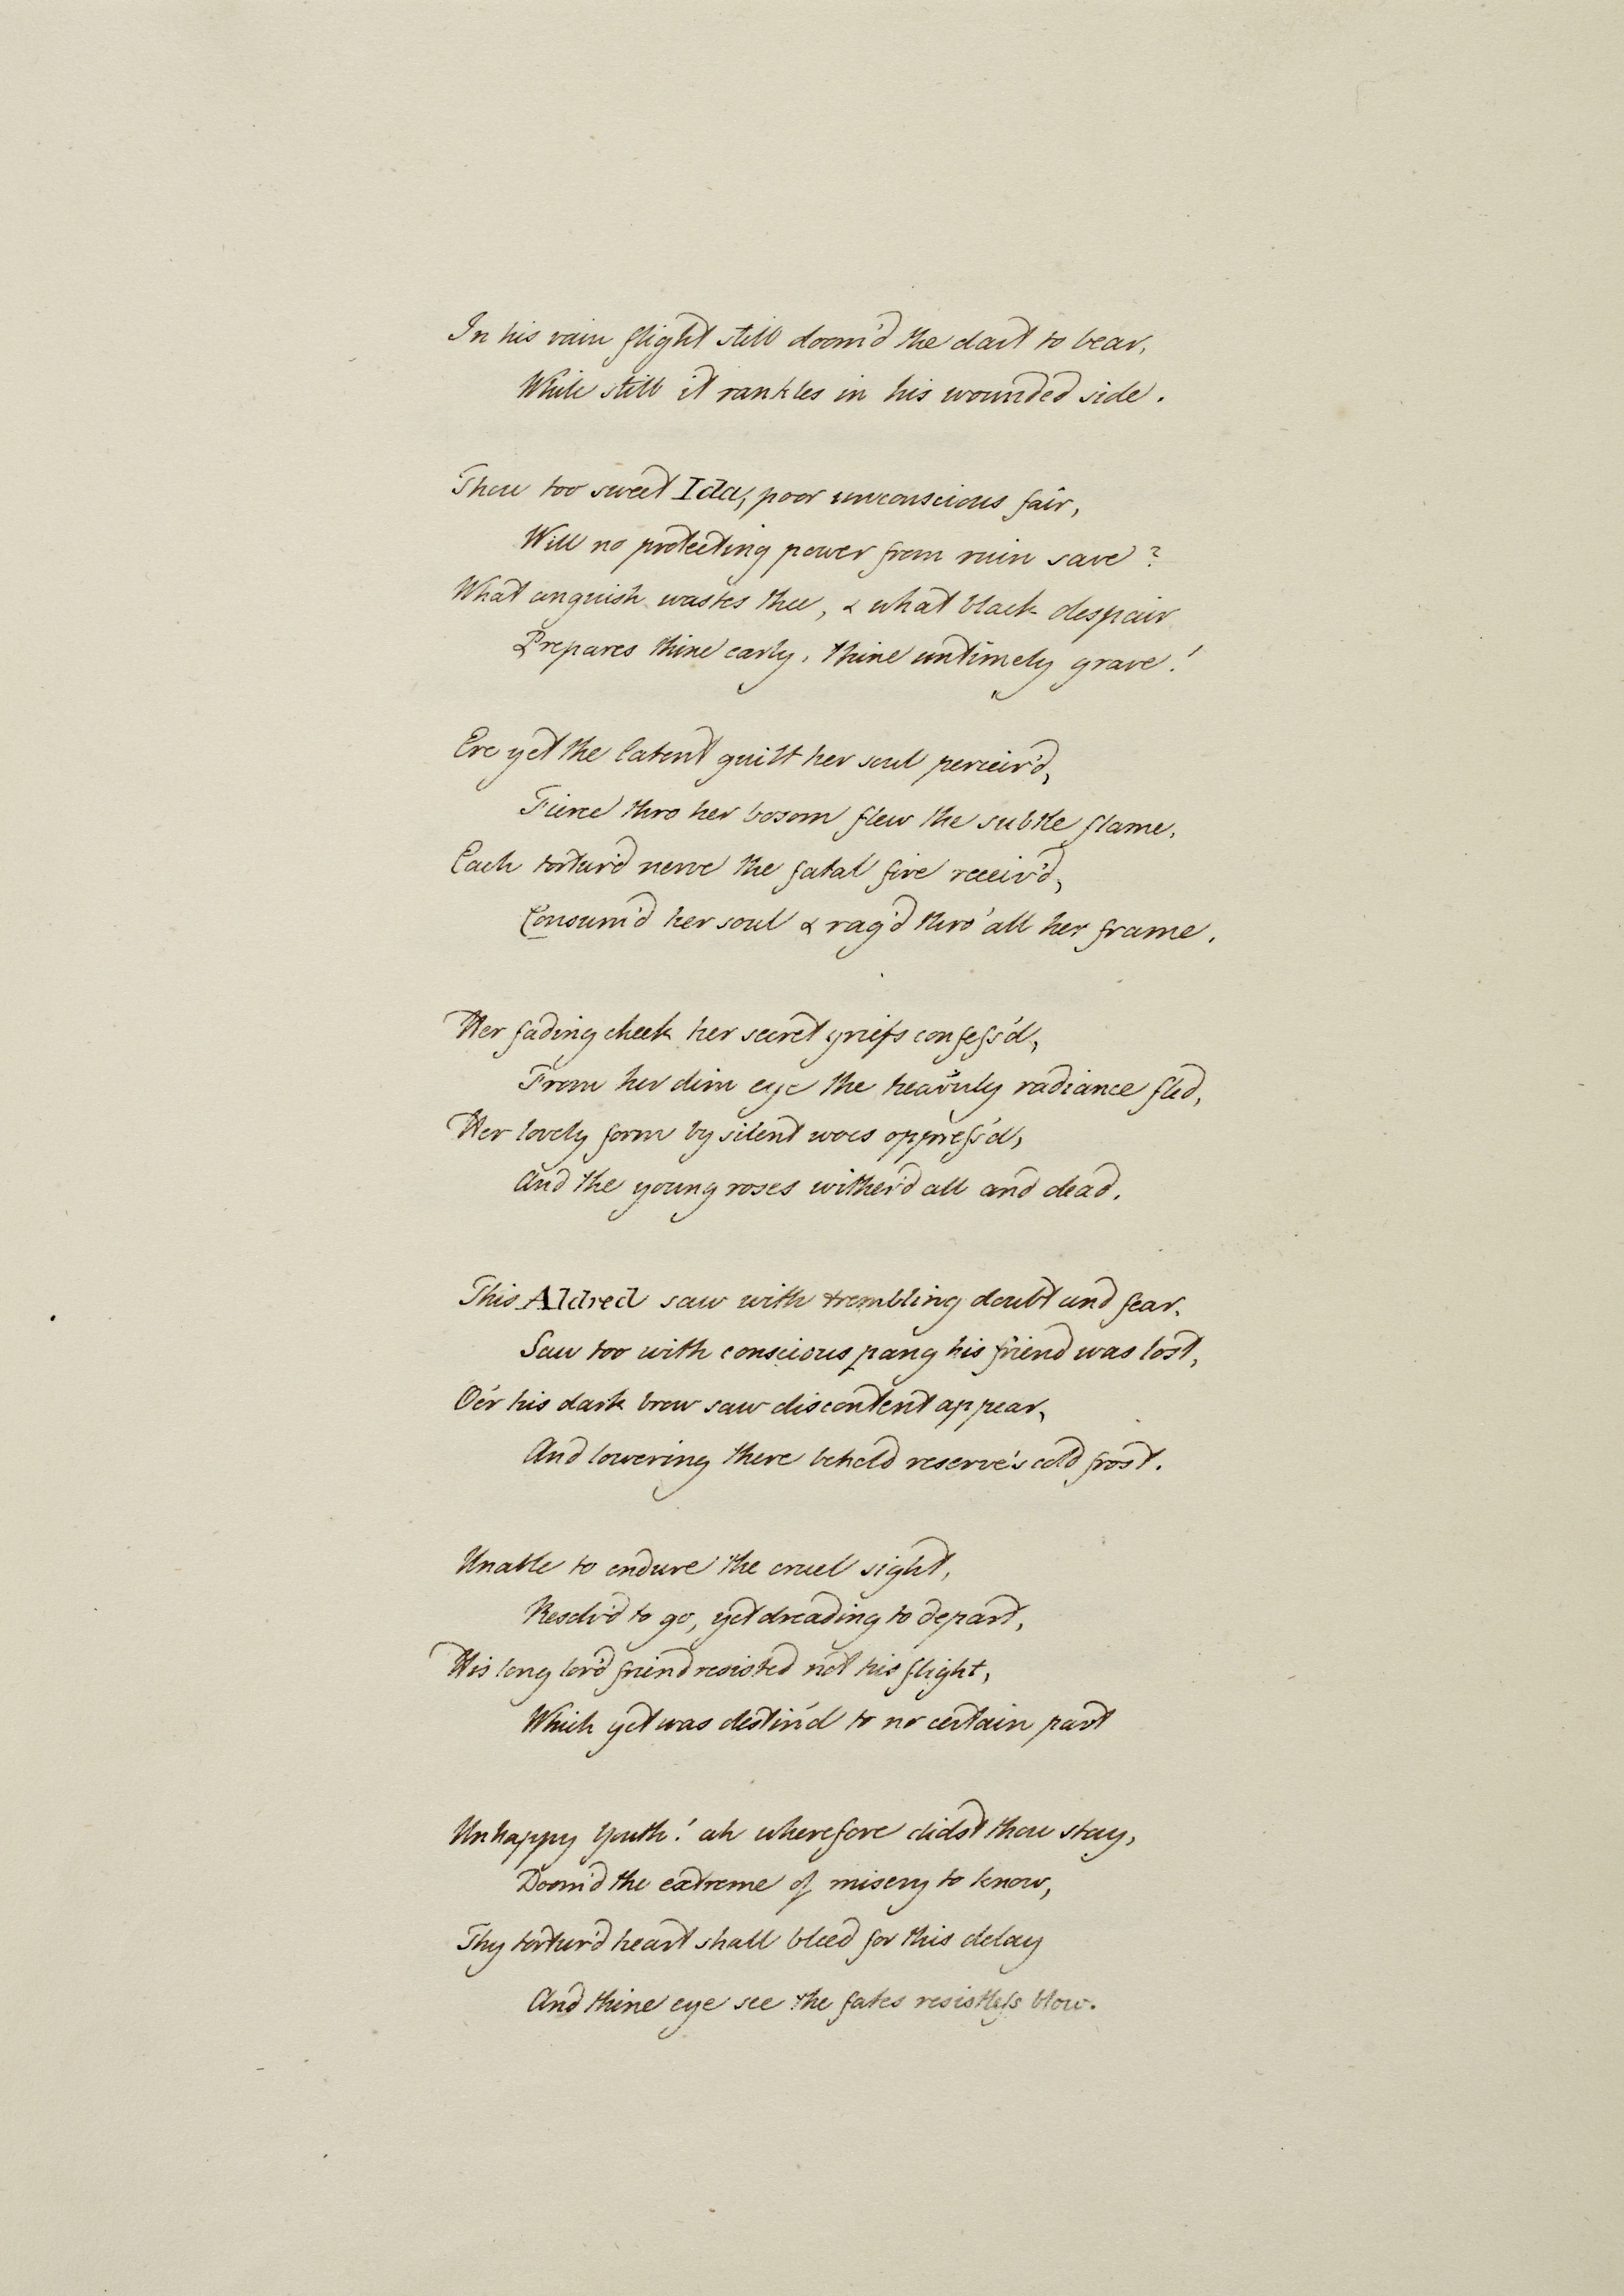 In his vain flight still doom'd the dart to bear,
While still it rankles in his wounded side.
Thou too sweet Ida, poor unconscious fair,
Will no protecting power from ruin save?
What anguish wastes thee, & what black despair
Prepares thine early, thine untimely grave!
Ere yet the latent guilt her soul perceiv'd,
Fierce thro her bosom flew the subtle flame,
Each tortur'd nerve the fatal fire receiv'd,
Consum'd her soul & rag'd thro' all her frame.
Her fading cheek her secret griefs confess'd,
From her dim eye the heav'nly radiance fled,
Her lovely form by silent woes oppress'd,
And the young roses wither'd all and dead.
This Aldred saw with trembling doubt and fear,
Saw too with conscious pang his friend was lost,
O'er his dark brow saw discontent appear,
And lowering there beheld reserve's cold frost.
Unable to endure the cruel sight,
Resolv'd to go, yet dreading to depart,
His long lov'd friend resisted not his flight,
Which yet was destin'd to no certain part
Unhappy Youth! ah wherefore didst thou stay,
Doom'd the extreme of misery to know,
Thy tortur'd heart shall bleed for this delay
And thine eye see the fates resistless blow.